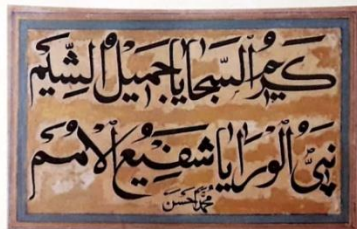 كريمُ السَّجايا جميلُ الشِّيَم
نبيُّ الورايا شفيعُ الامم
محمد احسن